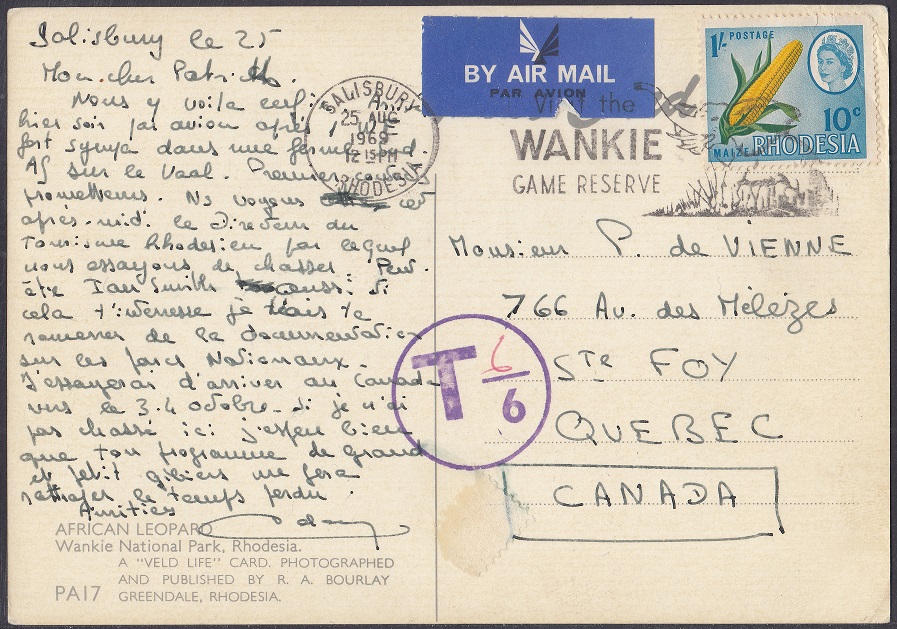 Salisbury le 25
Mon cher Patrick.
Nous y voilà enfin. 
hier soir par avion après
fort sympa dans une ferme
Af sur le Vaal. Premier
prometteurs. Ns voyons cet
après-midi le Directeur du
Tourisme Rhodesien par lequel
nous essayons de chasser. Peut-
être Ian Smith aussi. Si
cela t'intéresse je te
ramener de la documentation
sur les parcs Nationaux.
J'essayerai d'arriver au Canada
vers le 3.4 octobre. Si je n'ai
pas chassé ici j'espère bien
que ton programme de grand
et petit gibiers me fera
rattraper le temps perdu.
Amitiés
AFRICAN LEOPARD
Wankie National Park, Rhodesia.
A "VELD LIFE" CARD. PHOTOGRAPHED
AND PUBLISHED BY R. A. BOURLAY
PA17 GREENDALE, RHODESIA.
SALISBURY
25 AUG
1969
12 15 PM
RHODESIA
BY AIR MAIL
PAR AVION
Visit the
WANKIE
GAME RESERVE
1/- POSTAGE
10c
MAIZE
RHODESIA
Monsieur P. de VIENNE
766 Av. des Mélèzes
STE FOY
QUEBEC
CANADA
T 6/6